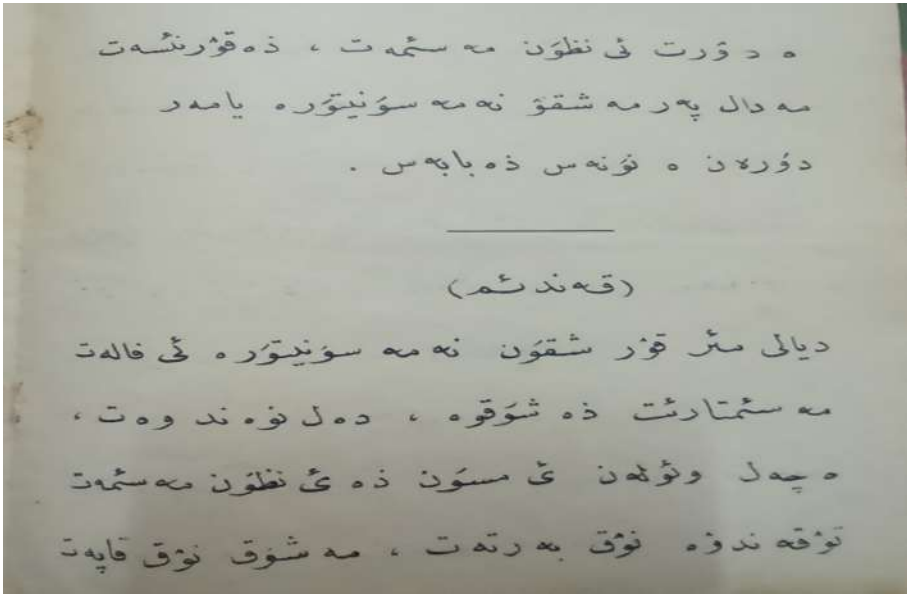 ە دۆرت ئی نظوَن مە سئمەت ، ذە قۆرنئسەت
مە دال پەر مە شقۆ نە مە سوَنیتوَرە یامەر
دۆرەن ە نوَنەس ذە بابەس .
(قەندئم)
دیالی مئر قۆر شقوَن نە مە سوَنیتوَرە ئی فالەت
مە سئمتارئت ذە شوَقوە ، دەل نوە ند وەت ،
ە چەل وئولەن ئ مسوَن ذە ئ نظوَن مە سئمەت
توَقە ندۆە نوَق بە رتەت ، مە شوَق نوَق قاپەت